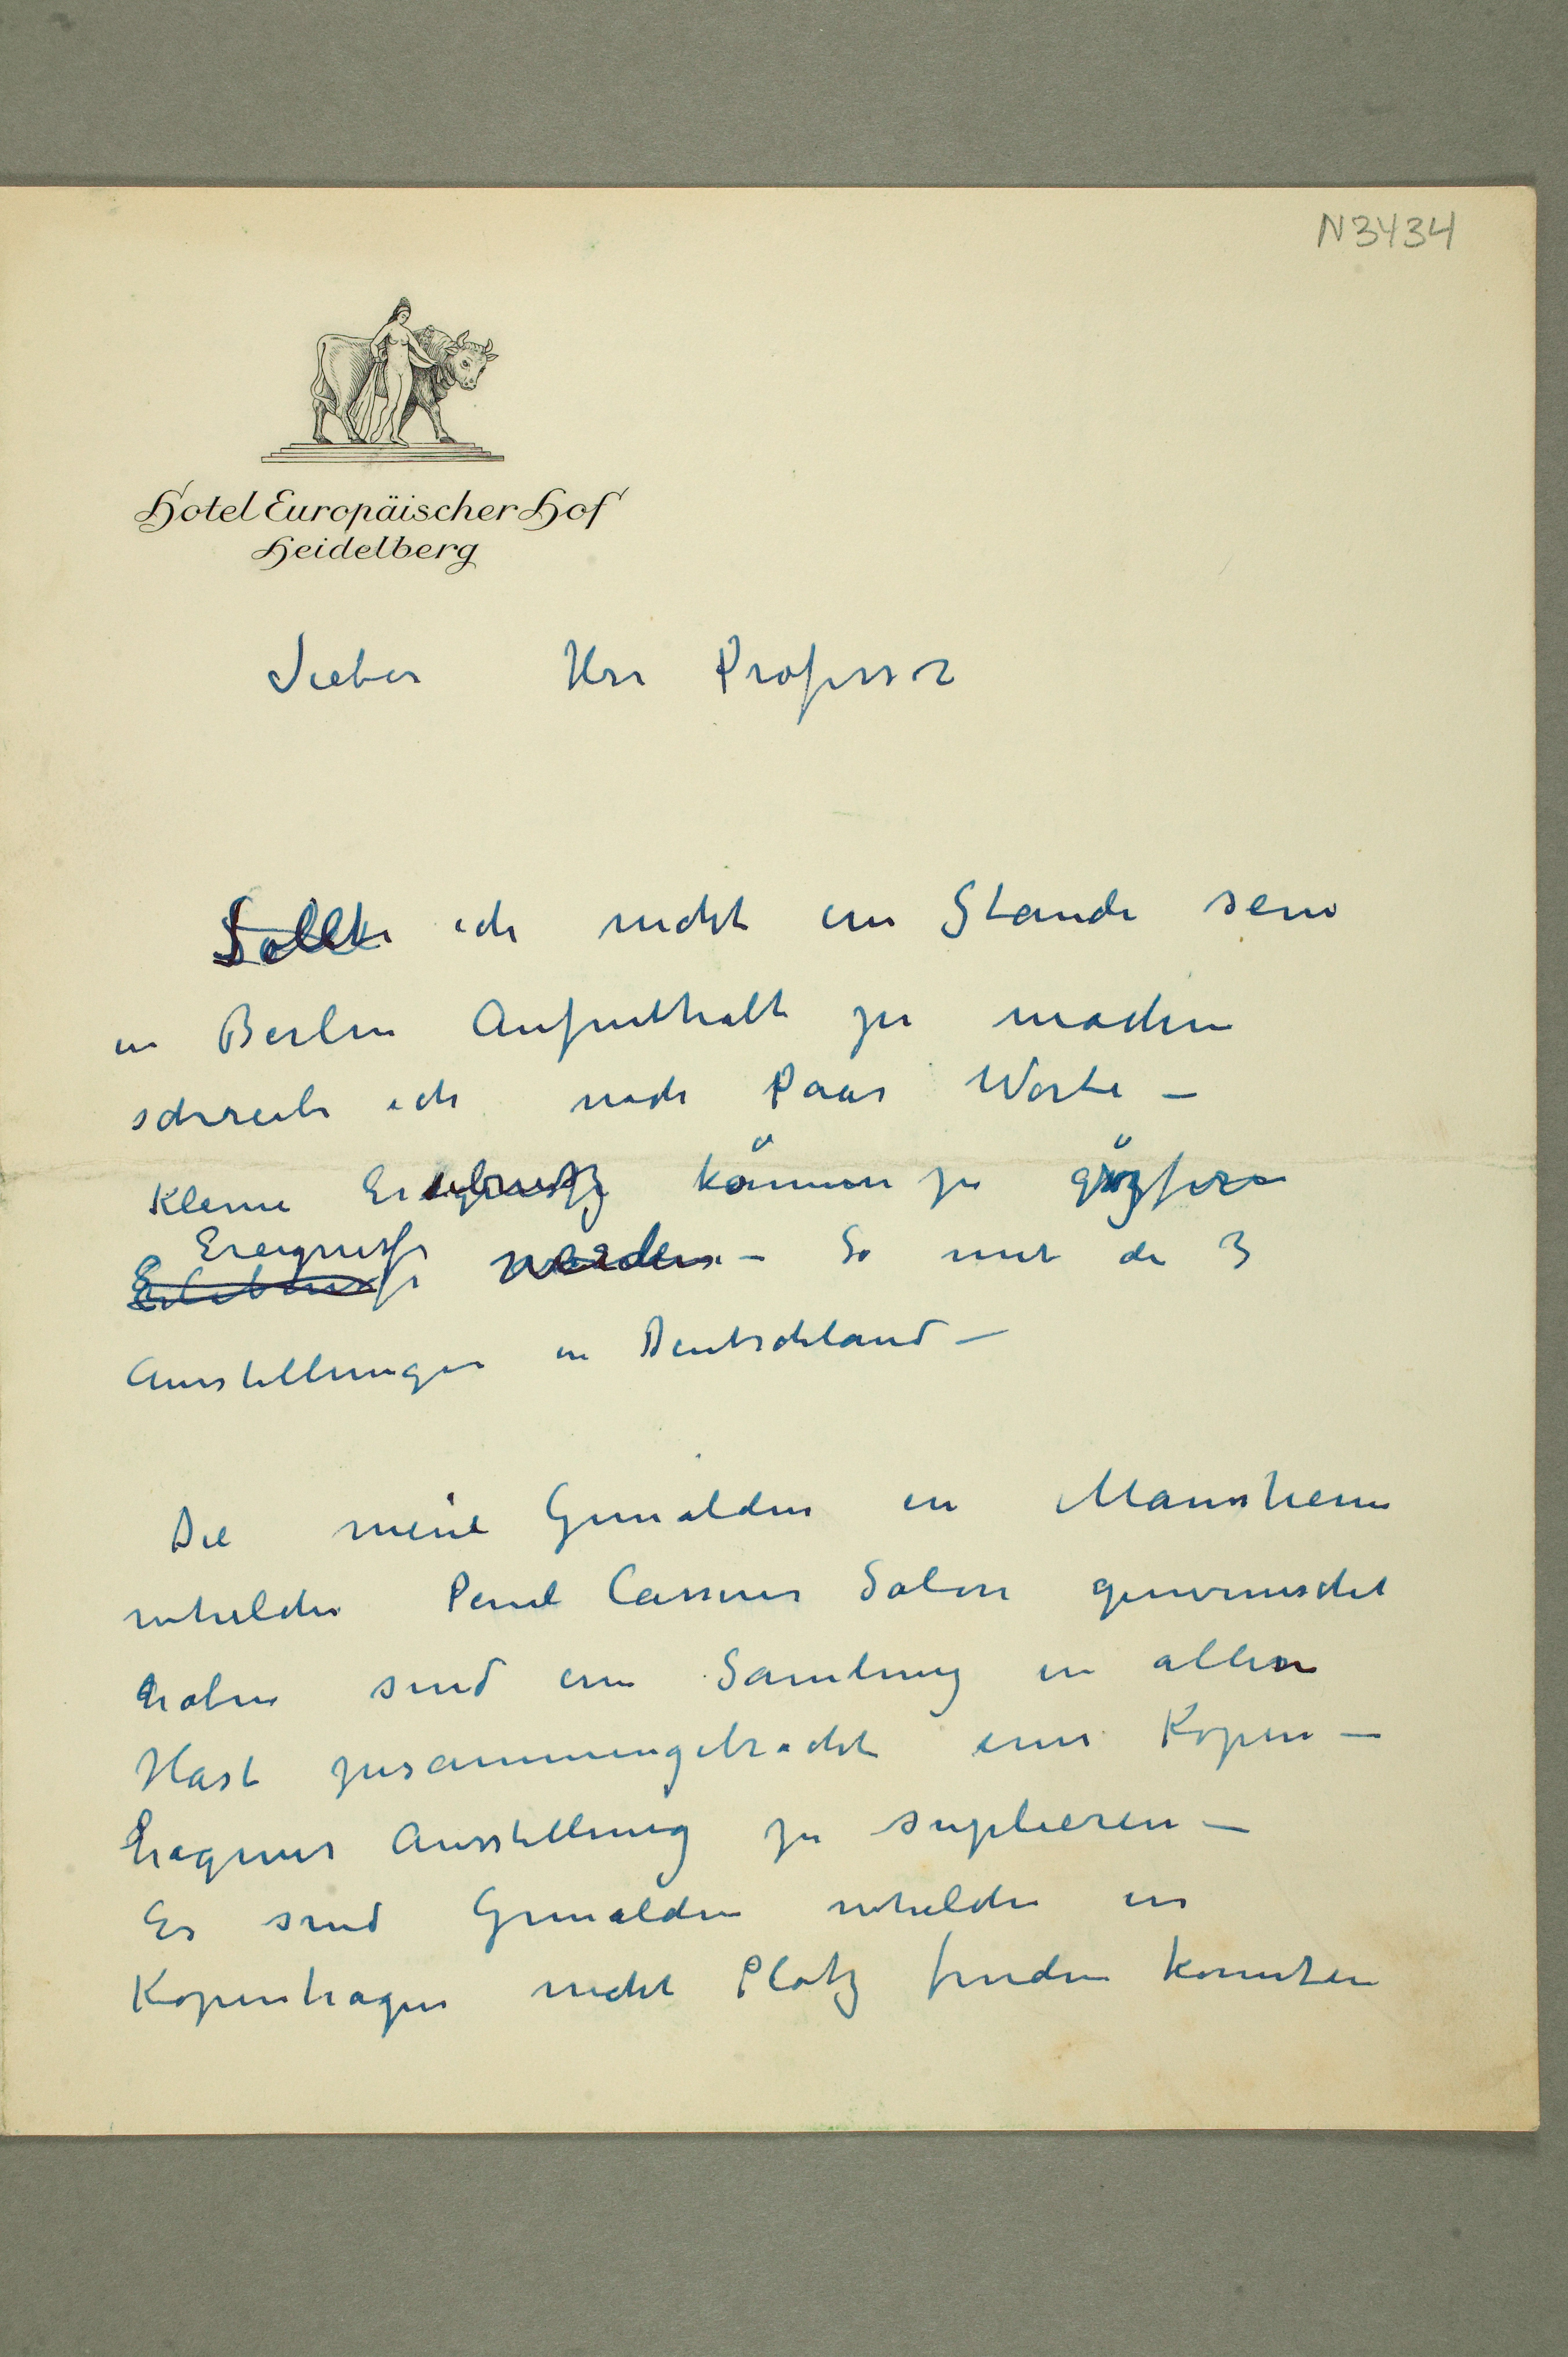 N3434
Hotel Europäischer Hof
Heidelberg
Lieber Herr Professor
Sollte ich nicht im Stande sein
in Berlin Aufenthalt zu machen
schreibe ich noch Paar Worte –
Kleine können zu
Ereignisse werden – So mit de 3
Ausstellungen in Deutschland –
Die meine Gemälden in Mannheim
whelche Paul Cassirer Salon gewunschet
haben sind eine Samlung in allen
Hast zusammengebracht eine Kopen–
hagener Ausstellung zu suplieren –
Es sind Gemälden whelche in
Kopenhagen nicht Platz finden konnten